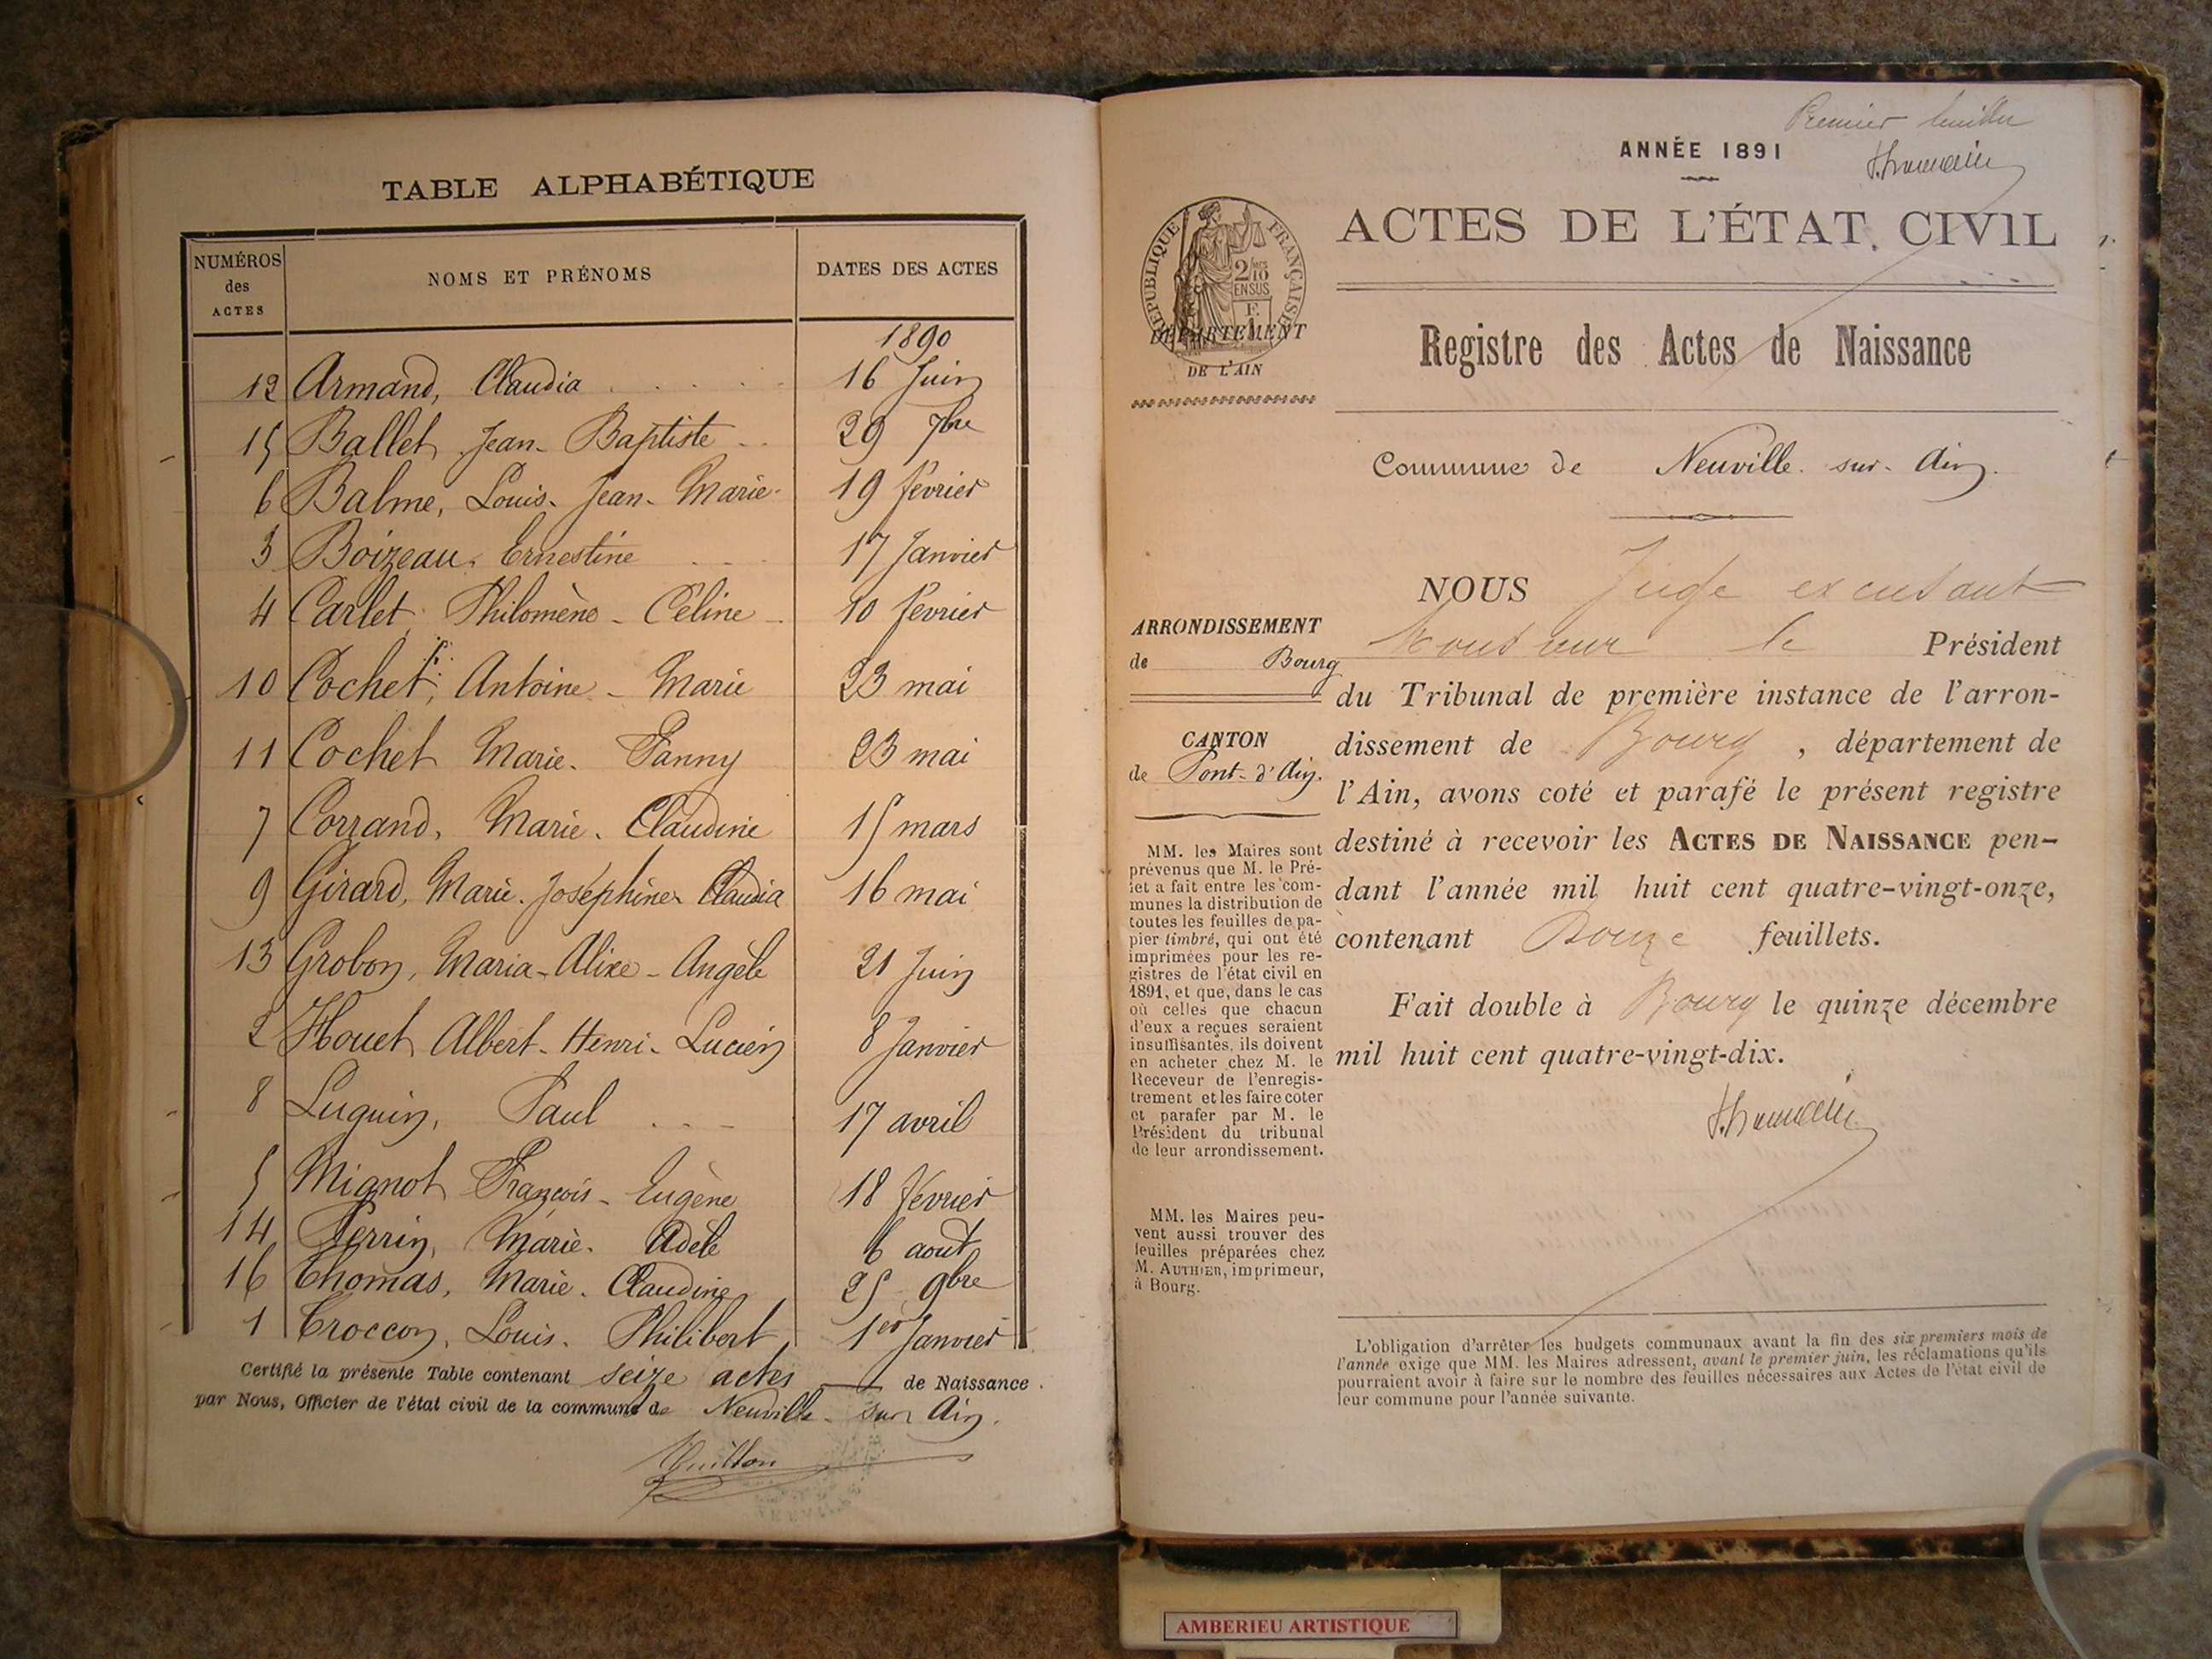 TABLE ALPHABÉTIQUE
NUMÉROS des ACTES NOMS ET PRÉNOMS DATES DES ACTES
1890
12 Armand, Claudia 16 Juin
15 Ballet Jean-Baptiste 29 7bre
6 Balme, Louis-Jean-Marie 19 février
3 Boizeau, Ernestine 17 Janvier
4 Carlet Philomène-Céline 10 février
10 Cochet, Antoine-Marie 23 mai
11 Cochet Marie-Fanny 23 mai
7 Corrand, Marie-Claudine 15 mars
9 Girard, Marie-Joséphine-Claudia 16 mai
13 Grobon, Maria-Alixe-Angèle 21 Juin
2 Houet Albert-Henri-Lucien 8 Janvier
8 Luquin, Paul 17 avril
5 Mignot François-Eugène 18 février
14 Perrin, Marie-Adèle 6 août
16 Thomas, Marie-Claudine 25 9bre
1 Troccon, Louis-Philibert 1er Janvier
Certifié la présente Table contenant seize actes de Naissance
par Nous, Officier de l'état civil de la commune de Neuville-sur Ain.
Premier feuillet
ANNÉE 1891
ACTES DE L'ÉTAT CIVIL
RÉPUBLIQUE FRANÇAISE
2/10 EN SUS
DÉPARTEMENT
DE L'AIN
Registre des Actes de Naissance
Commune de Neuville-sur-Ain.
ARRONDISSEMENT
de Bourg
CANTON
de Pont-d'Ain.
MM. les Maires sont
prévenus que M. le Pré-
fet a fait entre les com-
munes la distribution de
toutes les feuilles de pa-
pier timbré, qui ont été
imprimées pour les re-
gistres de l'état civil en
1891, et que, dans le cas
où celles que chacun
d'eux a reçues seraient
insuffisantes, ils doivent
en acheter chez M. le
Receveur de l'enregis-
trement et les faire coter
et parafer par M. le
Président du tribunal
de leur arrondissement.
MM. les Maires peu-
vent aussi trouver des
feuilles préparées chez
M. AUTHIER, imprimeur,
à Bourg.
NOUS Juge excusant
Monsieur le Président
du Tribunal de première instance de l'arron-
dissement de Bourg, département de
l'Ain, avons coté et parafé le présent registre
destiné à recevoir les ACTES DE NAISSANCE pen-
dant l'année mil huit cent quatre-vingt-onze,
contenant Douze feuillets.
Fait double à Bourg le quinze décembre
mil huit cent quatre-vingt-dix.
L'obligation d'arrêter les budgets communaux avant la fin des six premiers mois de
l'année exige que MM. les Maires adressent, avant le premier juin, les réclamations qu'ils
pourraient avoir à faire sur le nombre des feuilles nécessaires aux Actes de l'état civil de
leur commune pour l'année suivante.
AMBERIEU ARTISTIQUE